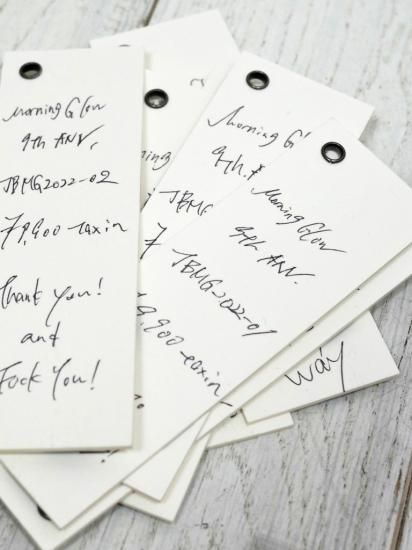 Morning Glow
9th ANV.
JBMG2022-02
79,900-taxin
Thank you!
and
Fuck You!
ing
Morning G
9th.
JBMG
7
Morning Glow
9th ANV.
JBMG2022-01
9,900-taxin
way